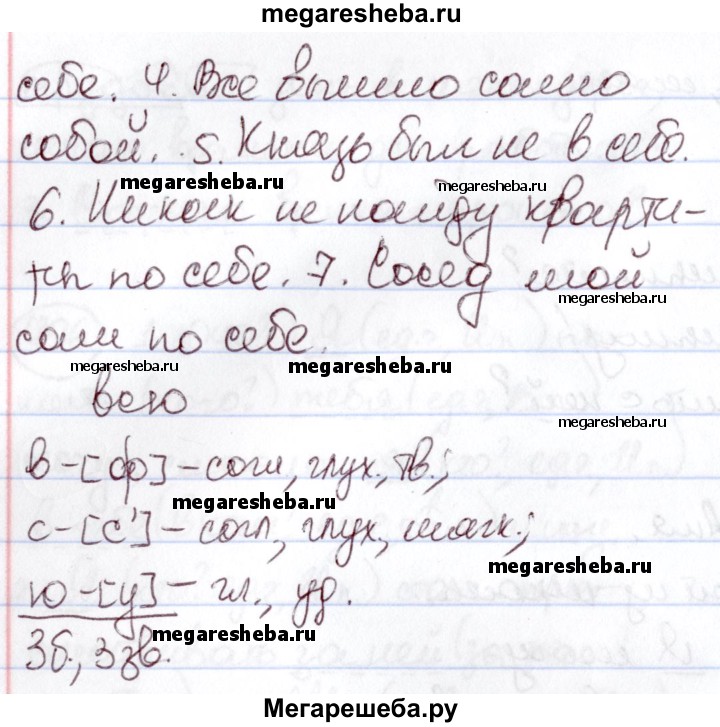 megaresheba.ru
себе. 4. Все вышло само
собой. 5. Князь был не в себе.
megaresheba.ru megaresheba.ru
6. Никак не найду кварти-
ры по себе. 7. Сосед мой
megaresheba.ru
сам по себе.
megaresheba.ru megaresheba.ru
всю
megaresheba.ru
в-[ф]-согл, глух, тв.;
megaresheba.ru
с-[с']-согл, глух, мягк.;
megaresheba.ru
ю-[у]-гл., уд.
megaresheba.ru
3б., 3зв.
Мегарешеба.ру